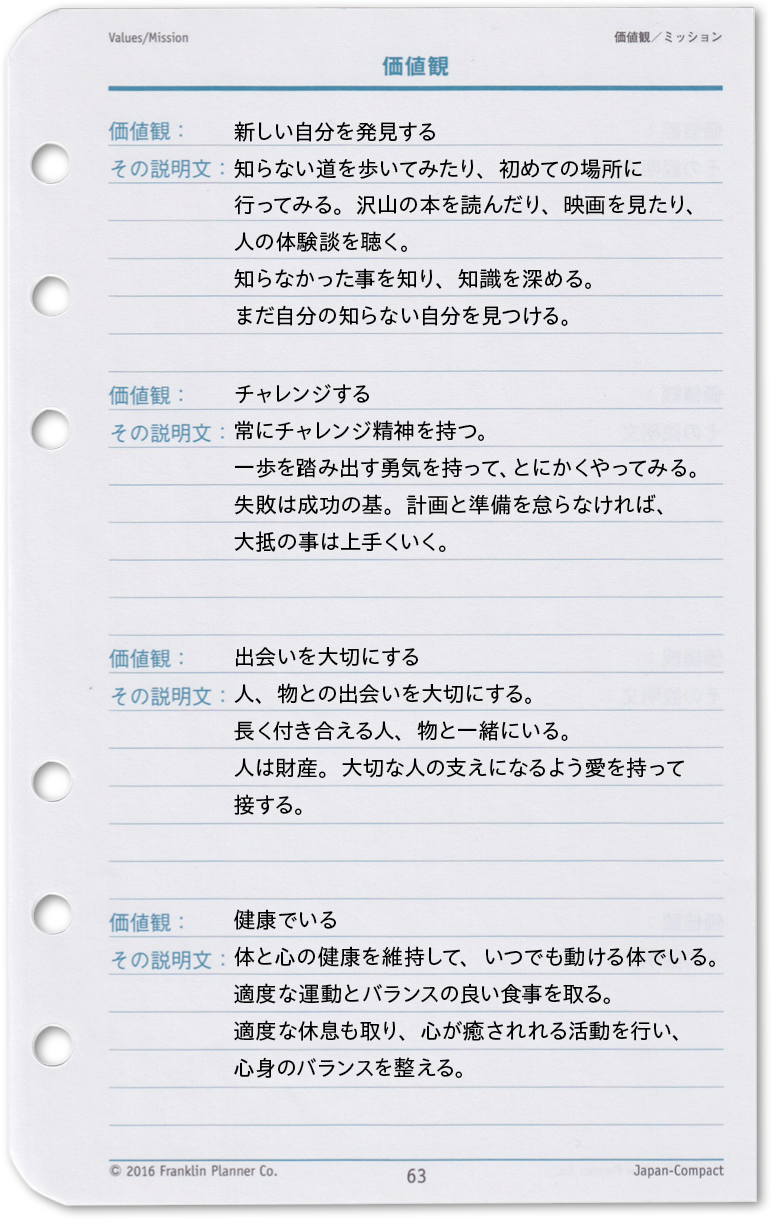 Values/Mission
価値観／ミッション
価値観
価値観： 新しい自分を発見する
その説明文：知らない道を歩いてみたり、初めての場所に
行ってみる。沢山の本を読んだり、映画を見たり、
人の体験談を聴く。
知らなかった事を知り、知識を深める。
まだ自分の知らない自分を見つける。
価値観： チャレンジする
その説明文：常にチャレンジ精神を持つ。
一歩を踏み出す勇気を持って、とにかくやってみる。
失敗は成功の基。計画と準備を怠らなければ、
大抵の事は上手くいく。
価値観： 出会いを大切にする
その説明文：人、物との出会いを大切にする。
長く付き合える人、物と一緒にいる。
人は財産。大切な人の支えになるよう愛を持って
接する。
価値観： 健康でいる
その説明文：体と心の健康を維持して、いつでも動ける体でいる。
適度な運動とバランスの良い食事を取る。
適度な休息も取り、心が癒されれる活動を行い、
心身のバランスを整える。
© 2016 Franklin Planner Co.
63
Japan-Compact